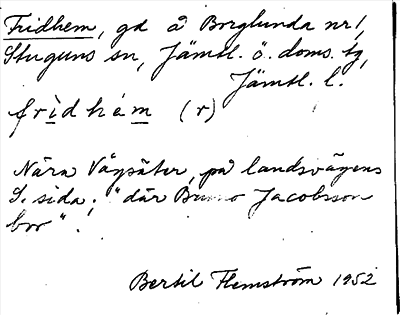 Fridhem, gd å Borglunda nr 1,
Stuguns sn, Jämtl. ö. doms. tg,
Jämtl. l.
frìdhém (r)
Nära Vägsäter, på landsvägens
S. sida; "där Bruno Jacobsson
bor".
Bertil Flemström 1952